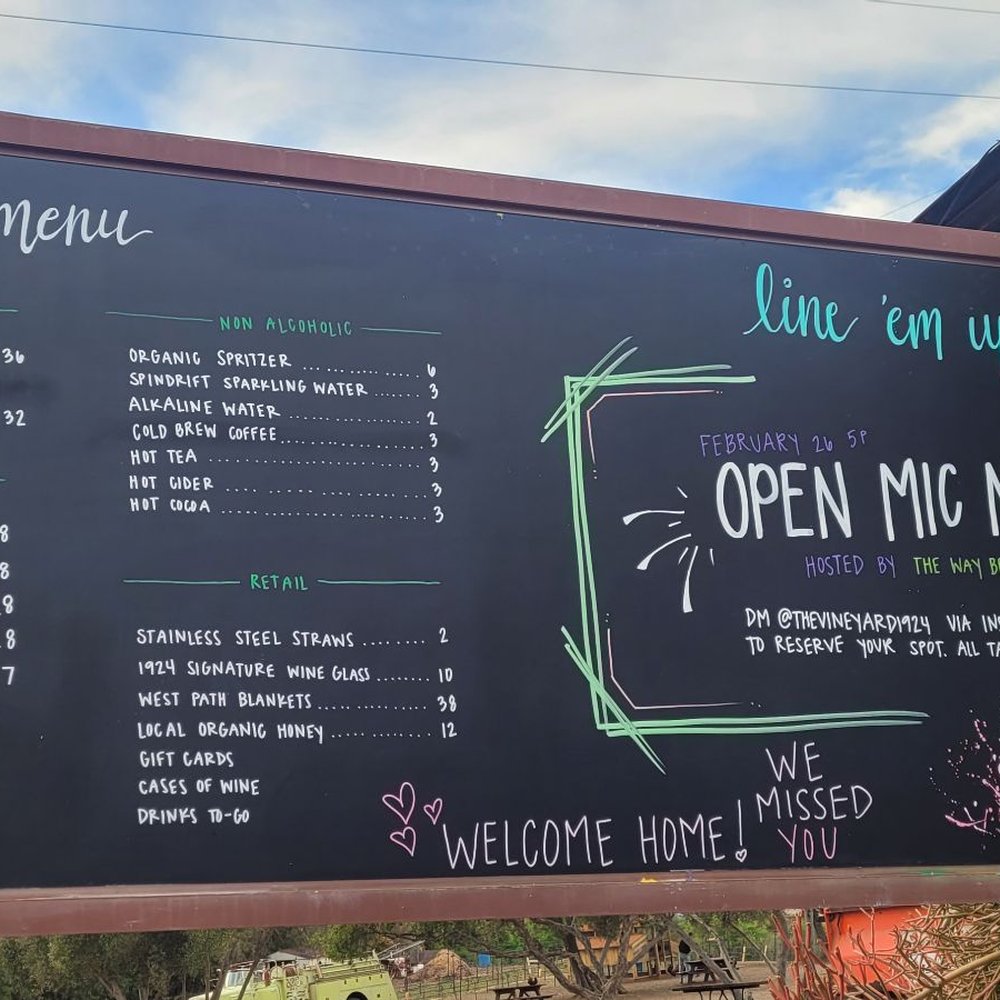 menu
36
32
8
8
8
8
7
NON ALCOHOLIC
ORGANIC SPRITZER ................ 6
SPINDRIFT SPARKLING WATER ....... 3
ALKALINE WATER ................... 2
COLD BREW COFFEE ................... 3
HOT TEA ............................... 3
HOT CIDER ............................ 3
HOT COCOA ............................. 3
RETAIL
STAINLESS STEEL STRAWS ........ 2
1924 SIGNATURE WINE GLASS ........ 10
WEST PATH BLANKETS ................ 38
LOCAL ORGANIC HONEY ............ 12
GIFT CARDS
CASES OF WINE
DRINKS TO-GO
line 'em u
FEBRUARY 26 5P
OPEN MIC N
HOSTED BY THE WAY B
DM @THEVINEYARD1924 VIA IN
TO RESERVE YOUR SPOT. ALL TA
WELCOME HOME!
WE
MISSED
YOU